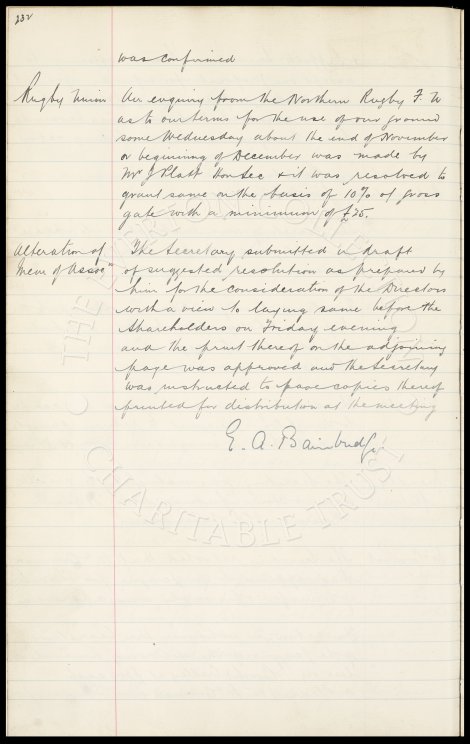 232
was confirmed
Rugby Union An enquiry from the Northern Rugby F. U
as to our terms for the use of our ground
some Wednesday about the end of November
or beginning of December was made by
Mr J Platt Hon Sec & it was resolved to
grant same on the basis of 10% of gross
gate with a minimum of £25.
Alteration of The Secretary submitted a draft
Mem of Assocn of suggested resolution as prepared by
him for the consideration of the Directors
with a view to laying same before the
Shareholders on Friday evening
and the print thereof on the adjoining
page was approved and the Secretary
was instructed to have copies thereof
printed for distribution at the meeting
E. A. Bainbridge
THE EVERTON COLLECTION
CHARITABLE TRUST